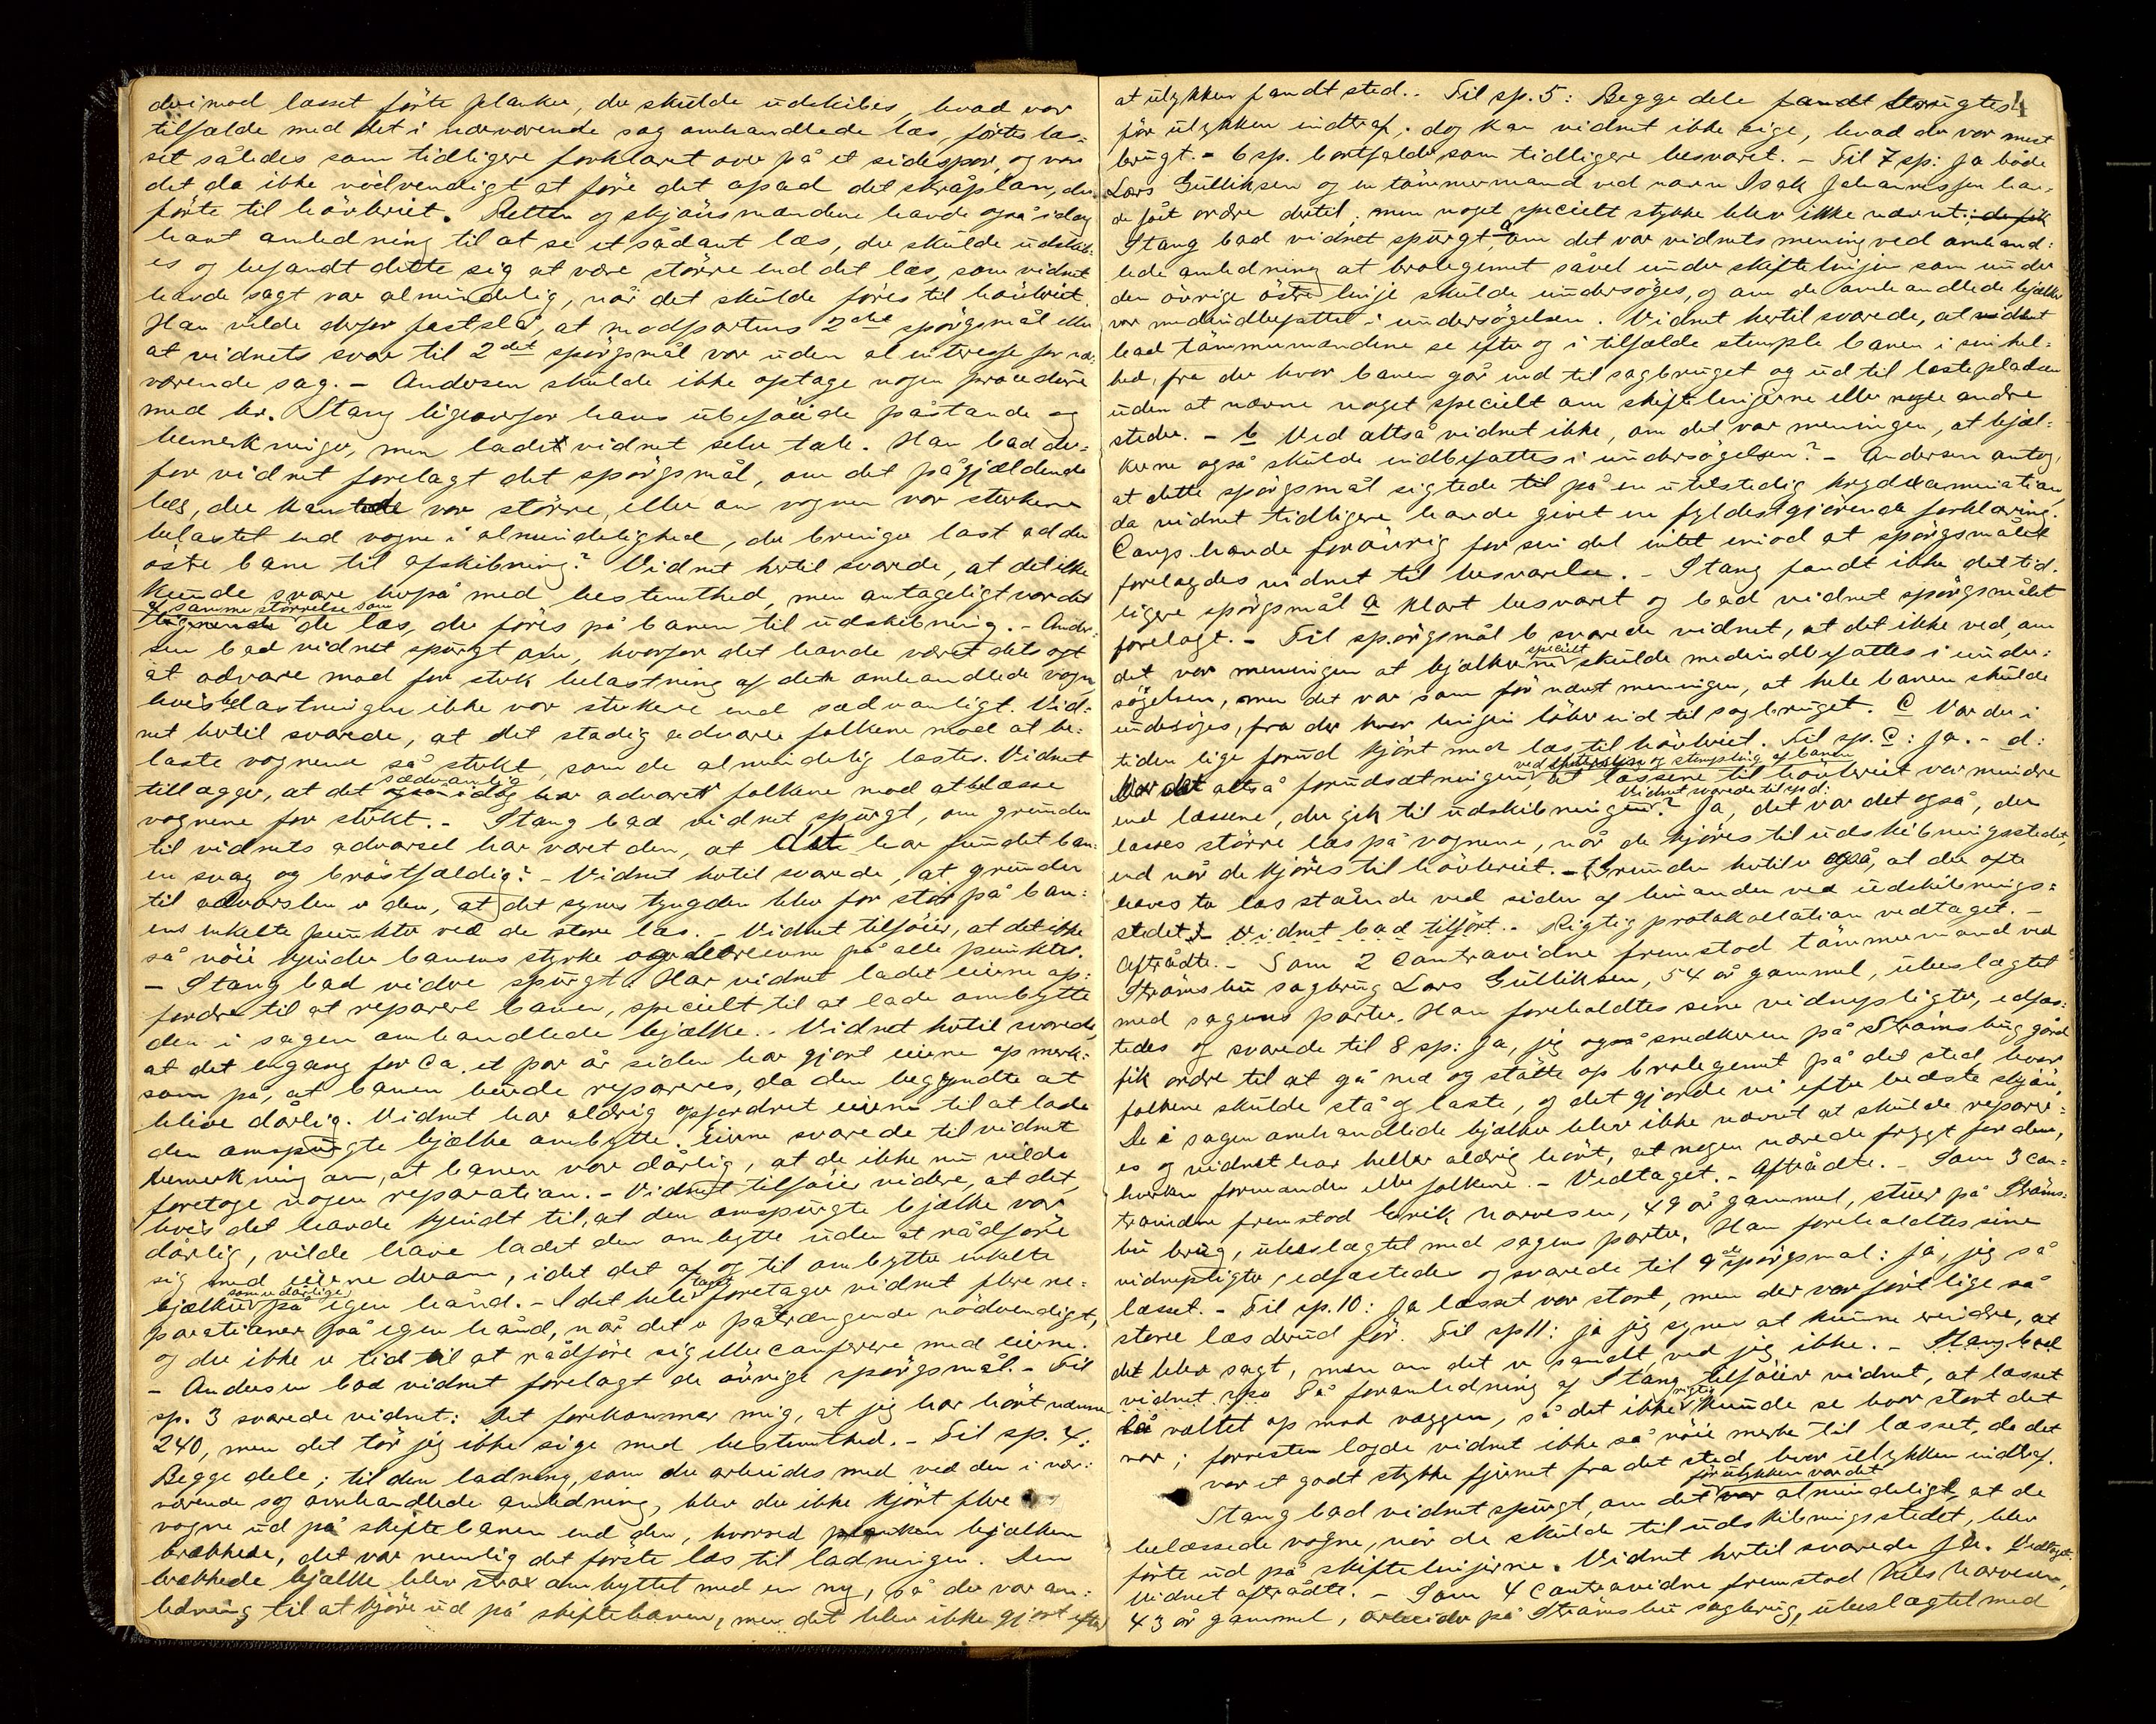 derimod læsset förte planker, der skulde udskibes, hvad var
tilfælde med det i nærværende sag omhandlede læs, förtes læs-
set således som tidligere forklaret over på et sidespor, og var
det da ikke nödvendigt at före det opad det skråplan, der
förte til hövleriet. Retten og skjönsmændene havde også idag
havt anledning til at se et sådant læs, der skulde udskib-
es og befandt dette sig at være större end det læs, som vidnet
havde sagt var almindelig, når det skulde föres til hövleriet.
Han vilde derfor fastslå, at modpartens 2det spörgsmål eller
at vidnets svar til 2det spörgsmål var uden al interesse for nær-
værende sag. – Andersen skulde ikke optage nogen procedure
med hr. Stang ligeoverfor hans ubeföiede påstande og
bemerkninger, men lade vidnet selv tale. Han bad der-
for vidnet forelagt det spörgsmål, om det pågjældende
læs, der væltede var större, eller om vognen var sterkere
belastet end vogne i almindelighed, der bringer last ad den
östre bane til afskibning? Vidnet hertil svarede, at det ikke
kunde svare herpå med bestemthed, men antageligt var det
af samme störrelse som
de læs, der föres på banen til udskibning. – Ander-
sen bad vidnet spurgt om, hvorfor det havde været dets agt
at advare mod for sterk belastning af den omhandlede vogn,
hvis belastningen ikke var sterkere end sædvanligt. Vid-
net hertil svarede, at det stadig advarer folkene mod at be-
laste vognene så sterkt, som de almindelig lastes. Vidnet
sædvanlig
tillægger, at det også idag har advaret folkene mod at belæsse
vognene for sterkt. – Stang bad vidnet spurgt, om grunden
til vidnets advarsel har været den, at det har fundet ban-
en svag og bröstfældig? – Vidnet hertil svarede, at grunden
til advarslen er den, at det synes tyngden blev for stor på ban-
ens enkelte punkter ved de store læs. – Vidnet tilföier, at det ikke
så nöie kjender banens styrke og bæreevne på alle punkter.
– Stang bad vidre spurgt: Har vidnet ladet eierne op-
fordre til at reparere banen, specielt til at lade ombytte
den i sagen omhandlede bjælke. – Vidnet hertil svarede,
at det engang for ca. et par år siden har gjort eierne opmerk-
som på, at banen burde repareres, da den begyndte at
blive dårlig. Vidnet har aldrig opfordret eierne til at lade
den omspurgte bjælke ombytte. Eierne svarede til vidnets
bemerkning om, at banen var dårlig, at de ikke nu vilde
foretage nogen reparation. – Vidnet tilföier videre, at det,
hvis det havde kjendt til, at den omspurgte bjælke var
dårlig, vilde have ladet den ombytte uden at rådföre
sig med eierne derom, idet det af og til ombytter enkelte
som er dårlige
bjælker på egen hånd. – I det hele taget foretager vidnet flere re-
parationer på egen hånd, når det er påtrængende nödvendigt,
og der ikke er tid til at rådföre sig eller conferere med eierne.
– Andersen bad vidnet forelagt de övrige spörgsmål. – Til
sp. 3 svarede vidnet: Det forekommer mig, at jeg har hört nævne
240, men det tör jeg ikke sige med bestemthed. – Til sp. 4:
Begge dele; til den ladning, som der arbeides med ved den i nær-
værende sag omhandlede anledning, blev der ikke kjört flere
vogne ud på skiftebanen end den, hvorved bjælken
brækkede, det var nemlig det förste læs til ladningen. Den
brækkede bjælke blev strax ombyttet med en ny, så der var an-
ledning til at kjöre ud på skiftebanen, men det blev ikke gjort efter
4
at ulykken fandt sted. – Til sp. 5: Begge dele brugtes
för ulykken indtraf; dog kan vidnet ikke sige, hvad der var mest
brugt. – 6 sp. bortfalder som tidligere besvaret. – Til 7 sp: Ja både
Lars Gulliksen og en tömmermand ved navn Isak Johannessen hav-
de fået ordre dertil; men noget specielt stykke blev ikke nævnt; de fik
Stang bad vidnet spurgt, a om det var vidnets mening ved omhand-
lede anledning at brolegemet såvel under skiftelinjen som under
den övrige östre linje skulde undersöges, og om de omhandlede bjælker
var medindbefattet i undersögelsen. Vidnet hertil svarede, at vidnet
bad tömmermændene se efter og i tilfælde stemple banen i sin hel-
hed, fra der hvor banen går ind til sagbruget og ud til lastepladsen
uden at nævne noget specielt om skiftelinjerne eller nogle andre
steder. – b Ved altså vidnet ikke, om det var meningen, at bjæl-
kerne også skulde indbefattes i undersögelsen? – Andersen antog,
at dette spörgsmål sigtede til på en utilstedig krydexamination,
da vidnet tidligere havde givet en fyldestgjörende forklaring.
Comp. havde foröivrig for sin del intet imod at spörgsmålet
forelagdes vidnet til besvarelse. – Stang fandt ikke det tid-
ligere spörgsmål a klart besvaret og bad vidnet spörgsmålet
forelagt. – Til spörgsmål b svarede vidnet, at det ikke ved, om
specielt
det var meningen at bjælkerne skulde medindbefattes i under-
sögelsen, men det var som för nævnt meningen, at hele banen skulde
undersöges, fra der hvor linjen löber ind til sagbruget. c Var der i
tiden lige forud kjört med læs til hövleriet. Til sp. c: Ja. – d:
ved undersögelsen og stempling af banen
Var det altså forudsætningen, at læssene til hövleriet var mindre
Vidnet svarede til sp d:
end læssene, der gik til udskibningen? Ja, det var det også, der
læsses större læs på vognene, når de kjöres til udskibningsstedet,
end når de kjöres til hövleriet. – Grunden hertil er også, at der ofte
haves to læs stående ved siden af hinanden ved udskibnings-
stedet. – Vidnet bad tilfört. – Rigtig protokollation vedtaget. –
Aftrådte. – Som 2 Contravidne fremstod tömmermand ved
Strömsbu sagbrug Lars Gulliksen, 54 år gammel, ubeslægtet
med sagens parter. Han foreholdtes sine vidnepligter, edfæs-
tedes og svarede til 8 sp: Ja, jeg også snedkeren på Strömsbug gård
fik ordre til at gå ned og stötte op brolegemet på det sted, hvor
folkene skulde stå og laste, og det gjorde vi efter bedste skjön.
De i sagen omhandlede bjælker blev ikke nævnt at skulde reparer-
es og vidnet har heller aldrig hört, at nogen nærede frygt for dem,
hverken formanden eller folkene. – Vedtaget. – Aftrådte. – Som 3 Con-
travidne fremstod Erik Narvesen, 49 år gammel, stuer på Ströms-
bu brug, ubeslægtet med sagens parter. Han foreholdtes sine
vidnepligter, edfæstedes og svarede til 9de spörgsmål: Ja, jeg så
læsset. – Til sp. 10: Ja læsset var stort, men der var fört lige så
store læs derud för. Til sp 11: ja jeg synes at kunne erindre, at
det blev sagt, men om det er sandt, ved jeg ikke. – Stang bad
vidnet spo På foranledning af Stang tilföier vidnet, at læsset
rigtig
lå væltet op mod væggen, så det ikke kunde se hvor stort det
var; forresten lagde vidnet ikke så nöie merke til læsset, da det
var et godt stykke fjernet fra det sted, hvor ulykken indtraf.
för ulykken var det
Stang bad vidnet spurgt, om det var almindeligt, at de
belæssede vogne, når de skulde til udskibningsstedet, blev
förte ud på skiftelinjerne. Vidnet hertil svarede Ja. Vedtaget.
Vidnet aftrådte. – Som 4 Contravidne fremstod Nils Narvesen,
43 år gammel, arbeider på Strömsbu sagbrug, ubeslægtet med